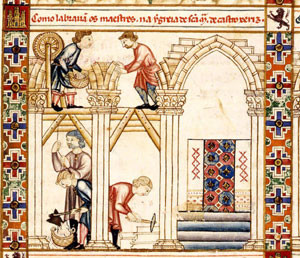 Como labrauã os maestres. na ygreia de scã Mª. de castro xeriz.